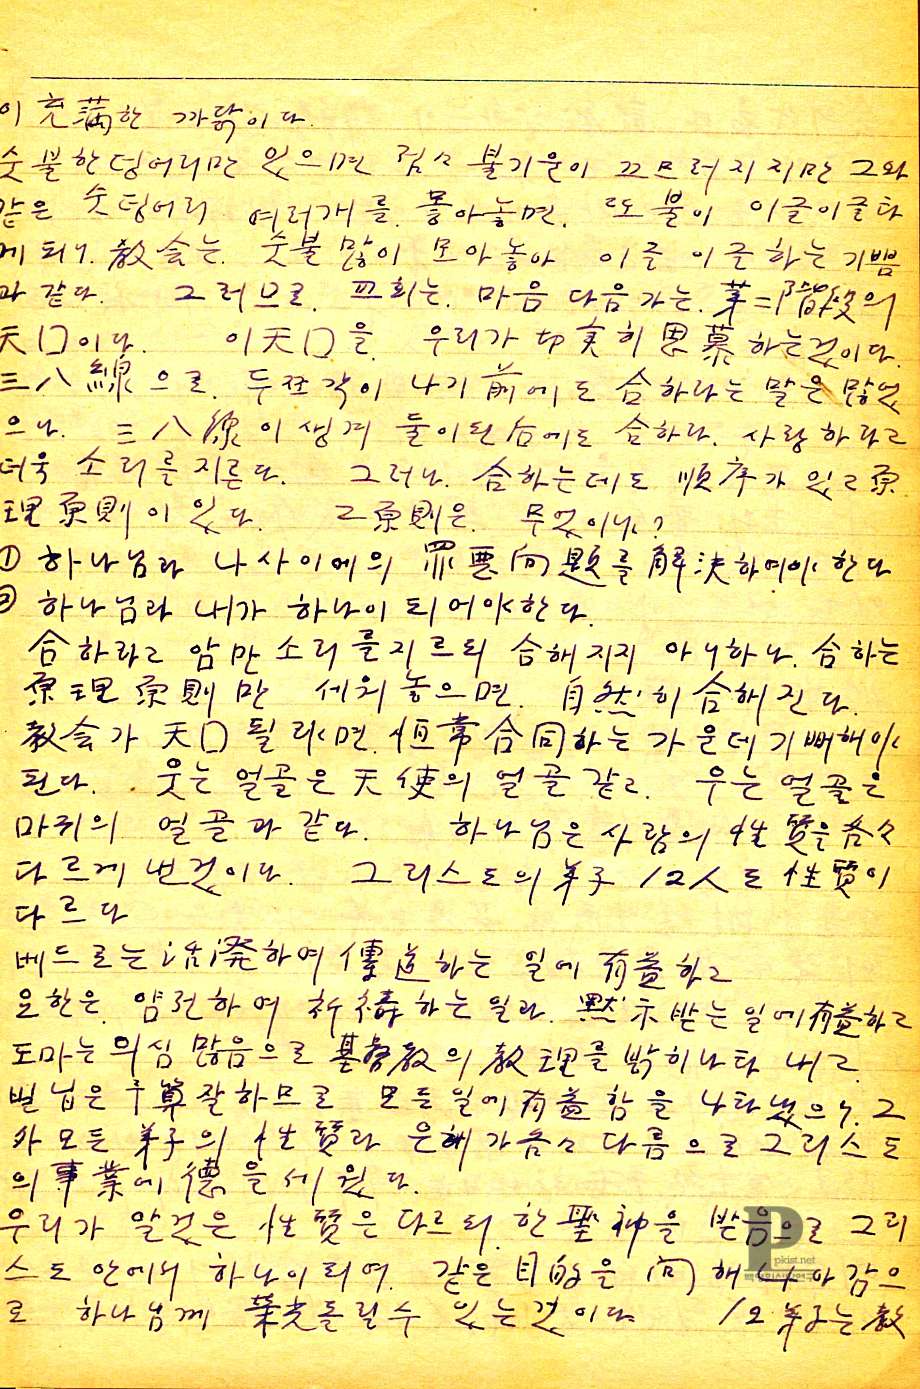 이 充滿한 까닭이다.
숫불한덩어리만 있으면 점々 불기운이 끄므러지지만 그와
같은 숫덩어리 여러개를 몽아놓면, 또 불이 이글이글타
게 되니. 敎会는. 숫불많이 모아놓아 이글 이글하는 기쁨
과 같다. 그러므로. 교회는. 마음 다음가는. 第二階段의
天口이다. 이天口을. 우리가 切実히 思慕하는것이다.
三八線으로. 두쪼각이 나기前에도 合하라는 말은 많었
으나. 三八線이 생겨 둘이된后에도 合하라. 사랑하라고
더욱 소리를지른다. 그러나. 合하는데도 順序가 있고 原
理原則이 있다. 그原則은. 무엇이냐?
① 하나님과 나사이에의 罪悪問題를 解決하여야 한다
② 하나님과 내가 하나이 되어야한다.
合하라고 암만소리를지르되 合해지지 아니하나. 合하는
原理原則만 세워놓으면. 自然히 合해진다.
敎会가 天口 될려면. 恒常合同하는 가운데 기뻐해야
된다. 웃는 얼골은 天使의 얼골같고. 우는 얼골은
마귀의 얼골과 같다. 하나님은 사람의 性質을 各々
다르게 낸것이다. 그리스도의 弟子 12人도 性質이
다르다
베드로는 活潑하여 傳道하는 일에 有益하고
요한은. 얌전하여 祈禱하는일과. 黙示받는일에有益하고
도마는 의심많음으로 基督敎의 敎理를 밝히나타내고.
빌닙은 予算잘하므로 모든일에有益함을 나타냈으니. 그
外모든 弟子의 性質과 은혜가各々 다름으로 그리스도
의 事業에 德을세웠다.
우리가 알것은 性質은다르되 한聖神을 받음으로 그리
스도안에서 하나이되여. 같은 目的을 向해 나아감으
로 하나님께 榮光돌릴수 있는것이다. 12弟子는 敎
P
pkist.net